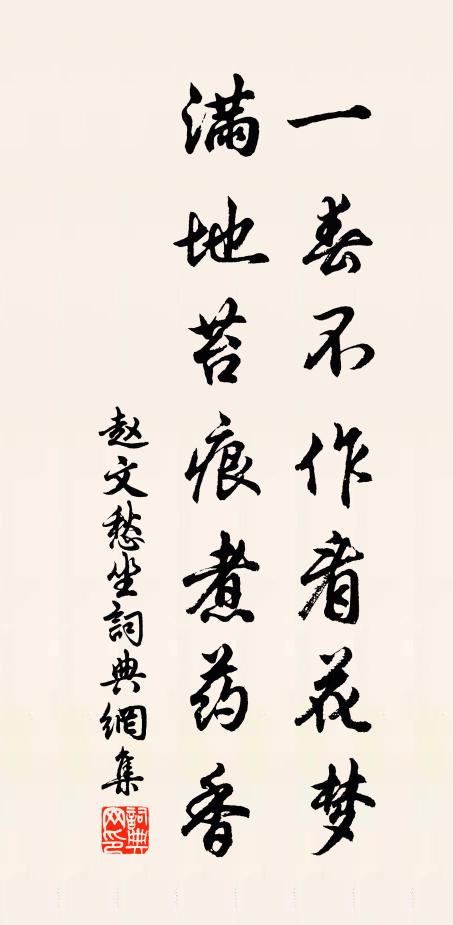 一春不作看花梦
满地苔痕煮药香
赵文愁坐詞典網集
詞典网印